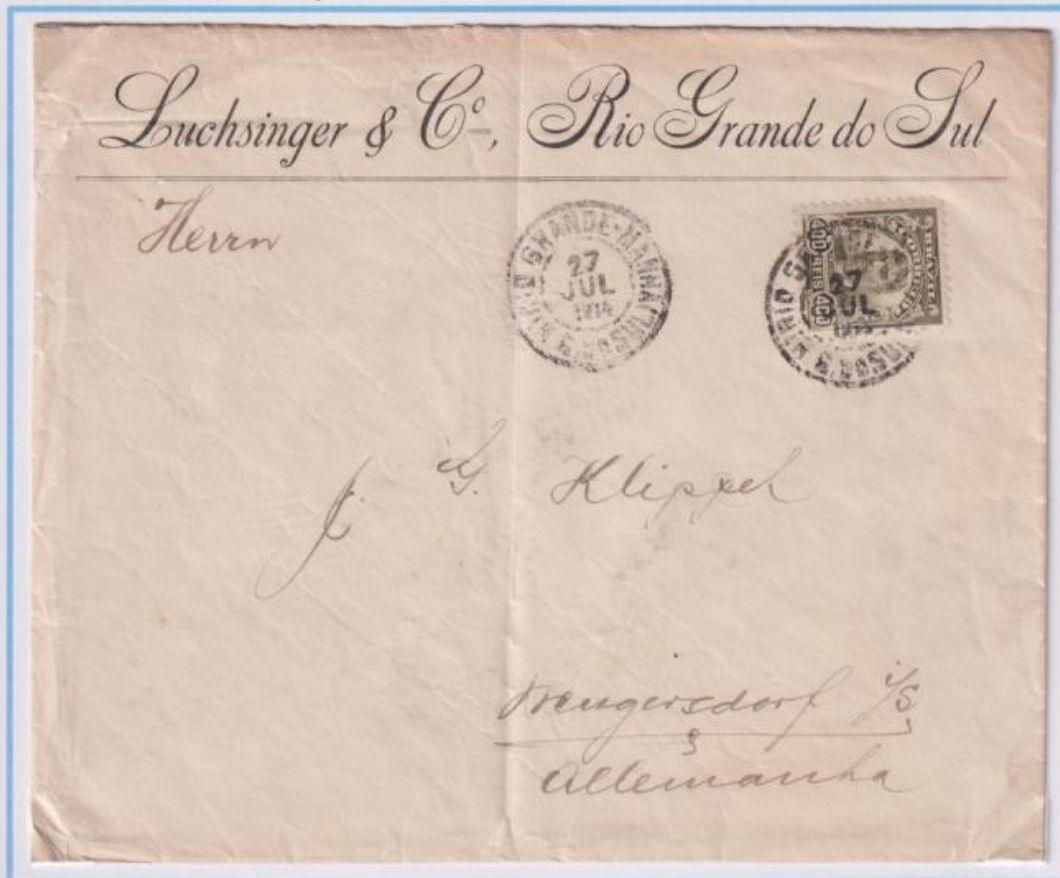 Luchsinger & Cº, Rio Grande do Sul
Herrn
RIO GRANDE-MANNÁ
27
JUL
1914
R.G. DO SUL
BRAZIL
400 REIS 400
27
JUL
J. G. Klippel
Neugersdorf i/S
Allemanha